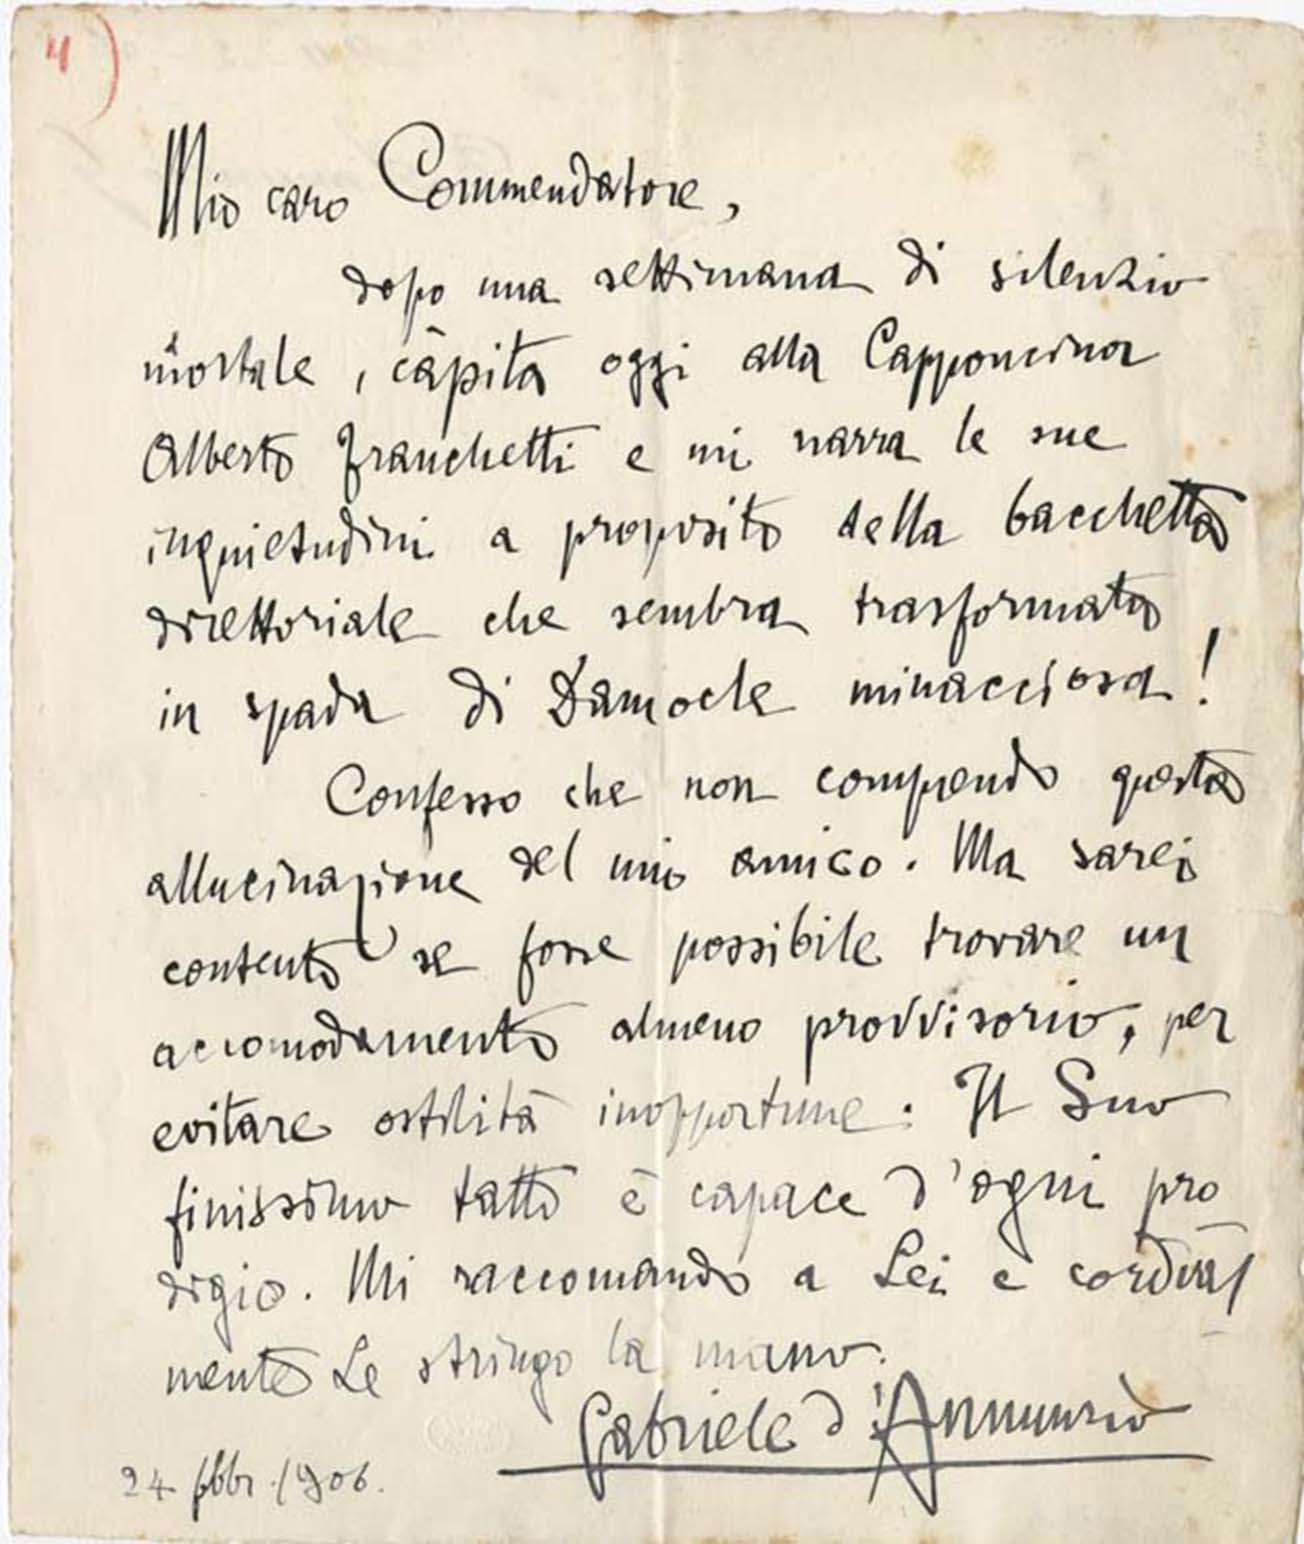 4)
Mio caro Commendatore,
dopo una settimana di silenzio
mortale, càpita oggi alla Capponcina
Alberto Franchetti e mi narra le sue
inquietudini a proposito della bacchetta
direttoriale che sembra trasformata
in spada di Damocle minacciosa!
Confesso che non comprendo questa
allucinazione del mio amico. Ma sarei
contento se fosse possibile trovare un
accomodamento almeno provvisorio, per
evitare ostilità inopportune. Il Suo
finissimo tatto è capace d'ogni pro
digio. Mi raccomando a Lei e cordial
mente Le stringo la mano.
Gabriele d'Annunzio
24 febbr. 1906.